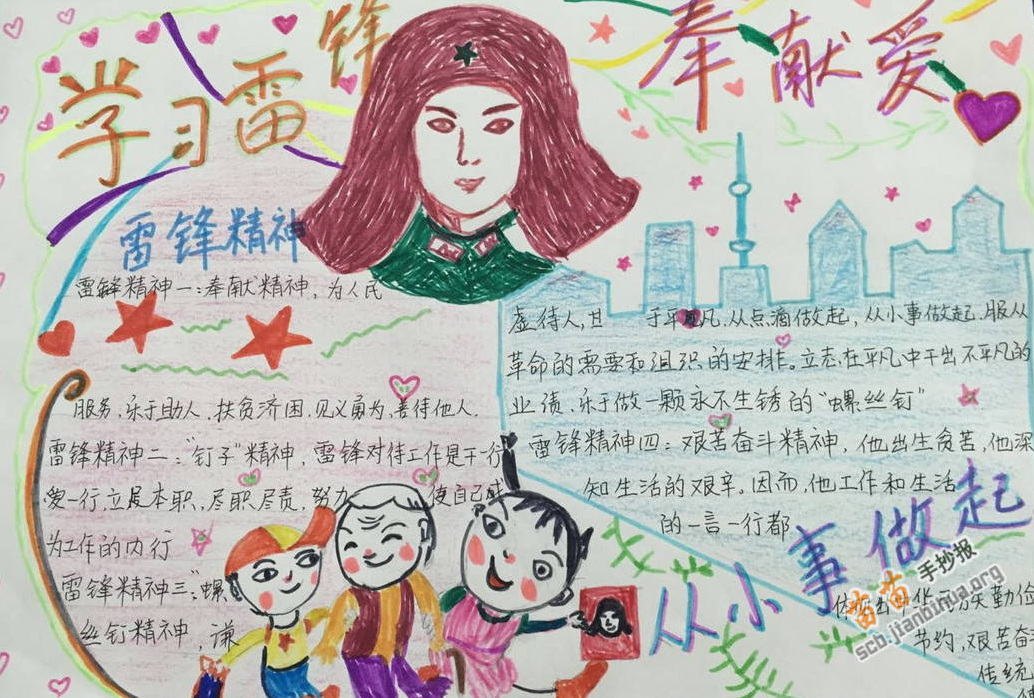 学习雷锋
奉献爱
雷锋精神
雷锋精神一：奉献精神，为人民
服务，乐于助人，扶贫济困，见义勇为，善待他人.
雷锋精神二："钉子"精神，雷锋对待工作是干一行
爱一行，立足本职，尽职尽责，努力 使自己成
为工作的内行
雷锋精神三："螺
丝钉精神，谦
虚待人，甘 于平凡，从点滴做起，从小事做起.服从
革命的需要和组织的安排。立志在平凡中干出不平凡的
业绩，乐于做一颗永不生锈的"螺丝钉"
雷锋精神四：艰苦奋斗精神，他出生贫苦，他深
知生活的艰辛。因而，他工作和生活
的一言一行都
勤俭
节约，艰苦奋
传统
从小事做起
苗苗手抄报
scb.jianbihua.org